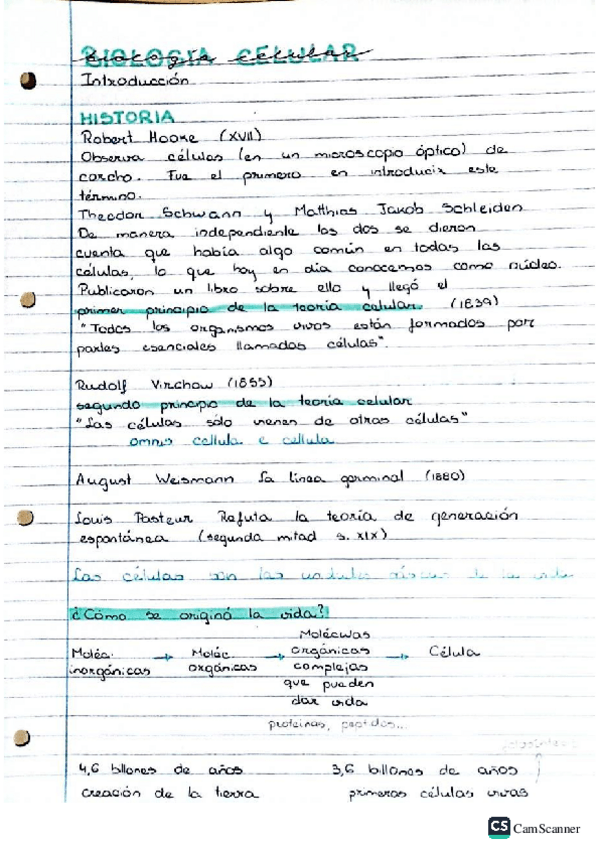 BIOLOGÍA CELULAR
Introducción
HISTORIA
Robert Hooke (XVII)
Observa células (en un microscopio óptico) de
corcho. Fue el primero en introducir este
término.
Theodor Schwann y Matthias Jakob Schleiden
De manera independiente los dos se dieron
cuenta que había algo común en todas las
células, lo que hoy en día conocemos como núcleo.
Publicaron un libro sobre ello y llegó el
primer principio de la teoría celular (1839)
"Todos los organismos vivos están formados por
partes esenciales llamados células".
Rudolf Virchow (1855)
segundo principio de la teoría celular
"Las células sólo vienen de otras células"
omnis cellula e cellula
August Weismann La línea germinal (1880)
Louis Pasteur Refuta la teoría de generación
espontánea (segunda mitad s. XIX)
Las células son las unidades básicas de la vida
¿Cómo se originó la vida?
Moléc. inorgánicas → Moléc. orgánicas → Moléculas orgánicas complejas que pueden dar vida → Célula
proteínas, peptidos...
4,6 billones de años 3,6 billones de años
creación de la tierra primeras células vivas
CS CamScanner